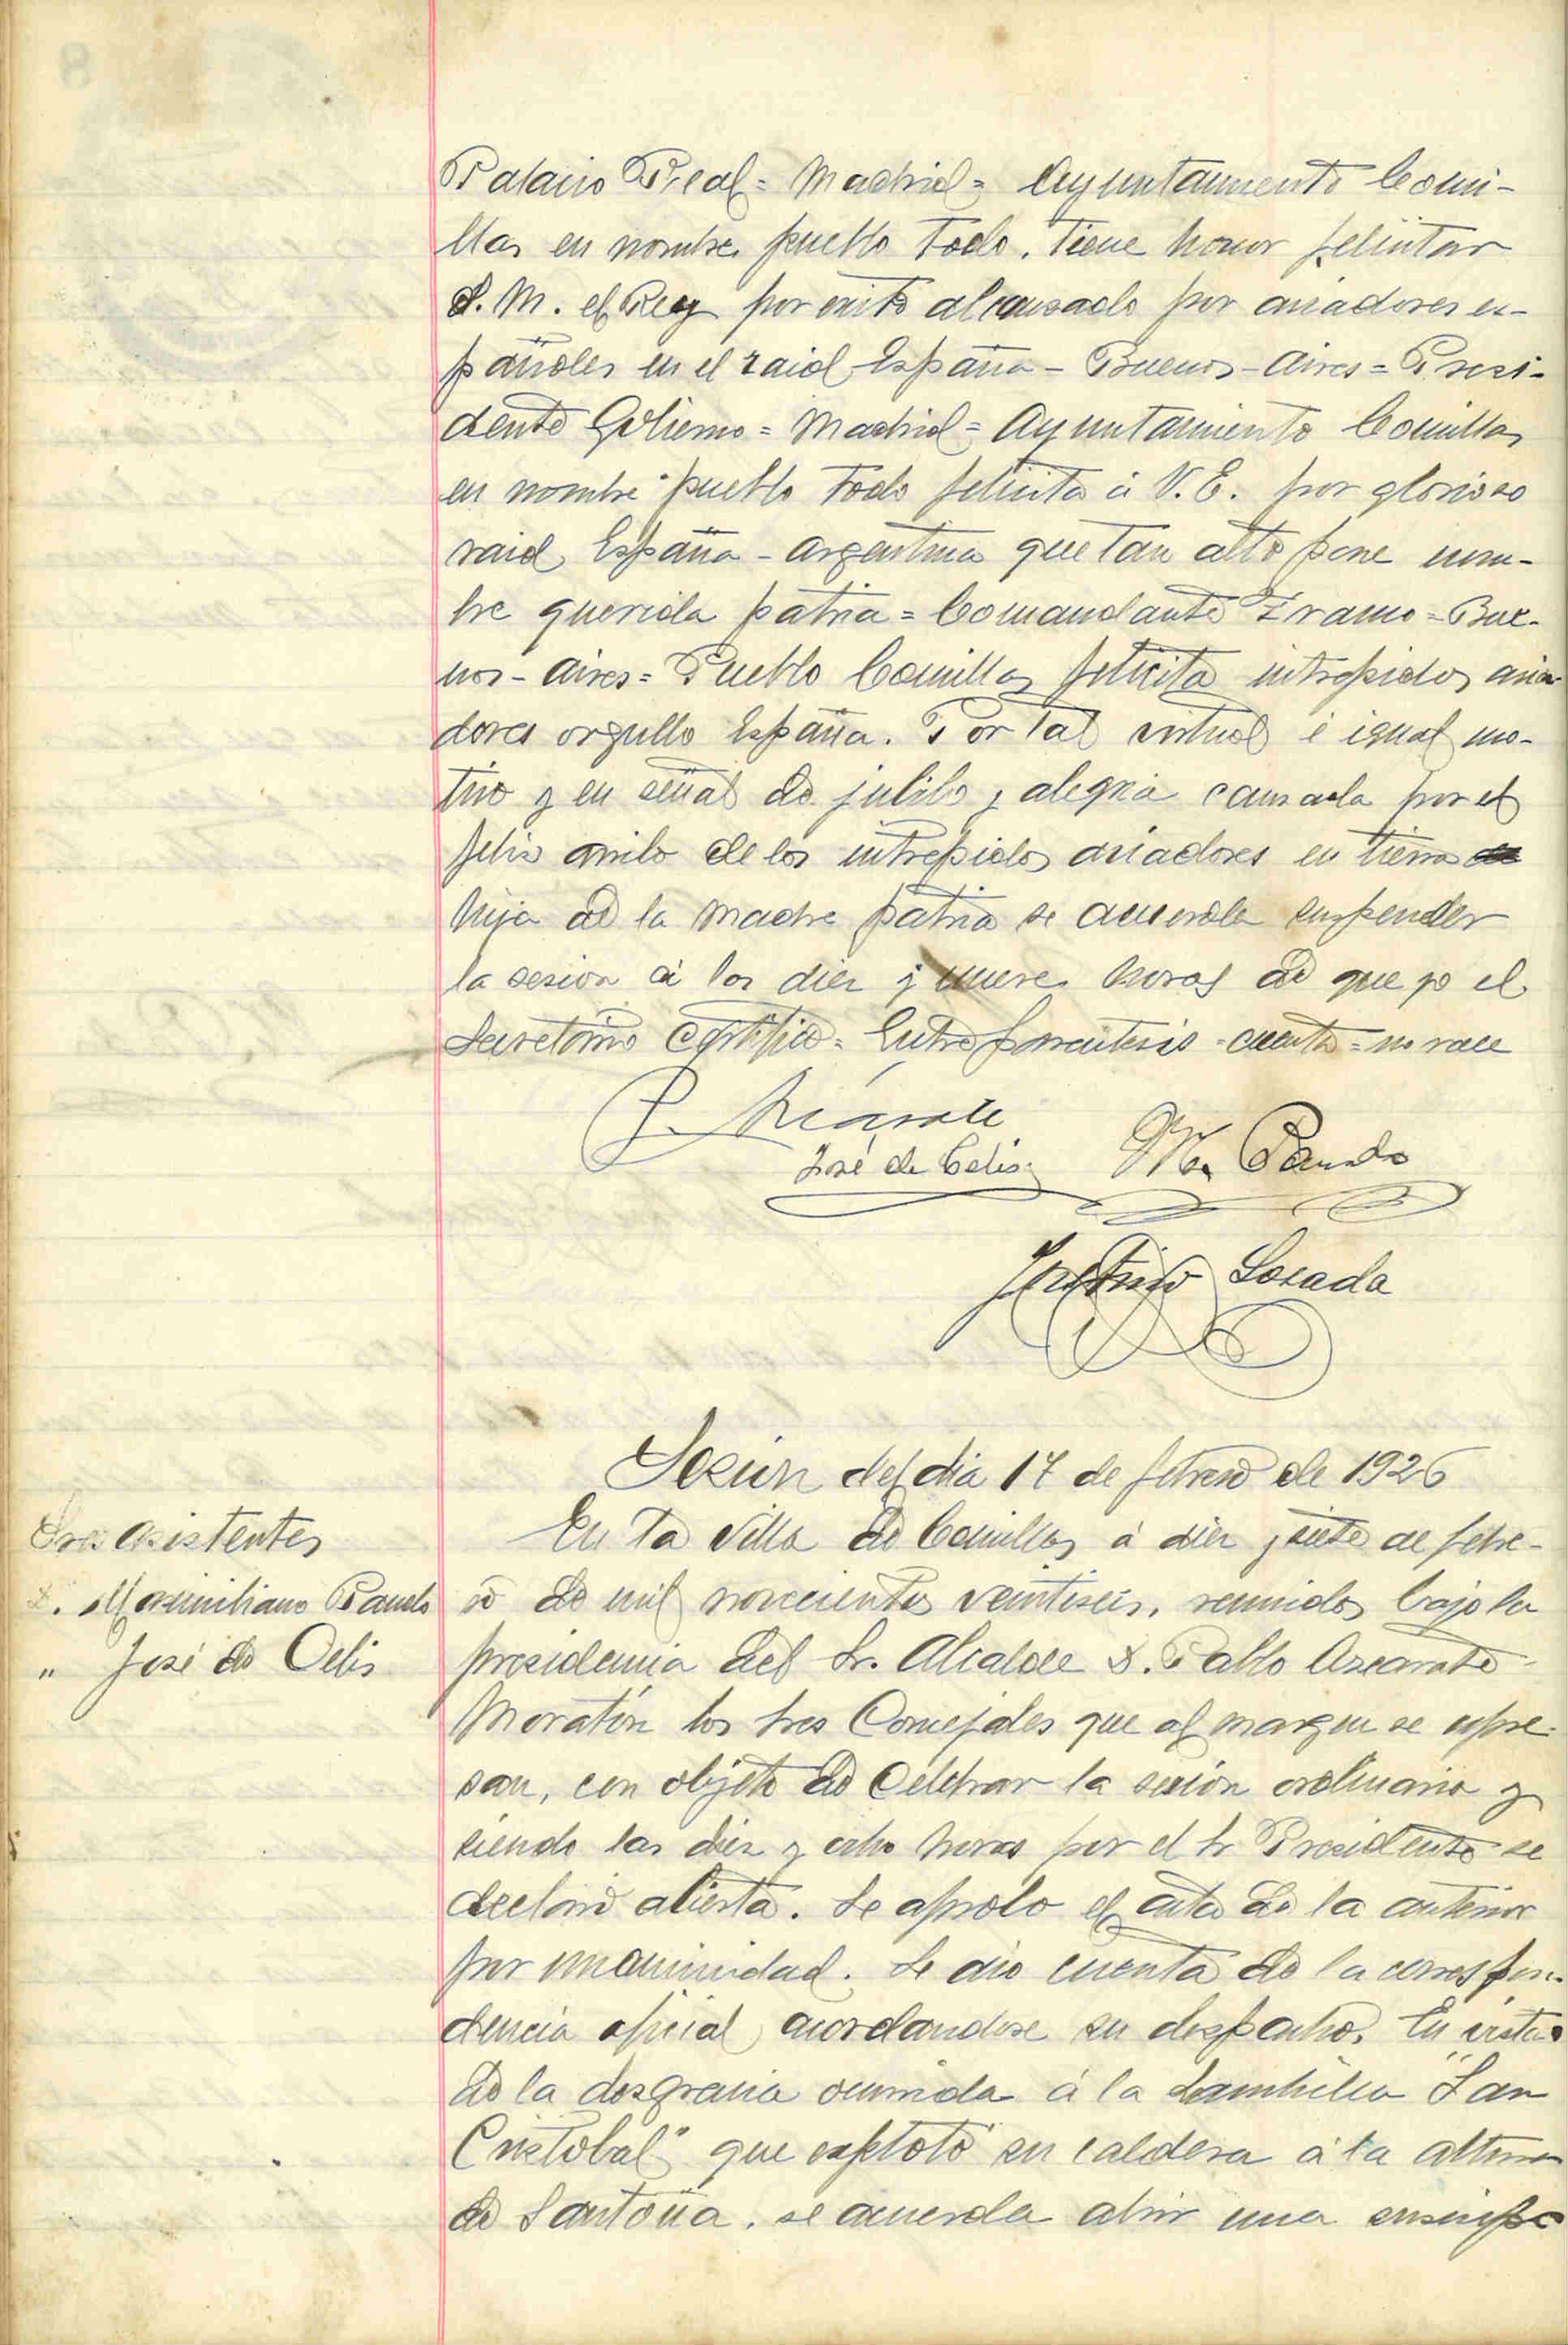 Palacio Real = Madrid = Ayuntamiento Comi-
llas en nombre pueblo todo, tiene honor felicitar
S. M. el Rey por exito alcansado por aviadores es-
pañoles en el raid España - Buenos - Aires = Presi-
dente Gobierno = Madrid = Ayuntamiento Comillas
en nombre pueblo todo felicita á V. E. por glorioso
raid España - Argentina que tan alto pone nom-
bre querida patria = Comandante Franco = Bue-
nos - Aires = Pueblo Comillas felicita intrepidos avia-
dores orgullo España. Por tal virtud é igual mo-
tivo y en señal de jubilo y alegria causada por el
feliz arribo de los intrepidos aviadores en tierra
hija de la madre patria se acuerda suspender
la sesion á las diez y nueve horas de que yo el
Secretario certifico = Entre parentesis = cuenta = no vale
P. Azcarate
José de Celis M. Pando
Losada
Sesion del dia 17 de febrero de 1926
Sres asistentes
D. Maximiliano Pando
" José de Celis
En la villa de Comillas á diez y siete de febre-
ro de mil novecientos veintiseis, reunidos bajo la
presidencia del Sr. Alcalde D. Pablo Azcarate
Moratín los tres Concejales que al margen se expre-
san, con objeto de celebrar la sesión ordinaria y
siendo las diez y ocho horas por el Sr Presidente se
declaró abierta. Se aprobo el acta de la anterior
por unanimidad. Se dio cuenta de la correspon-
dencia oficial acordandose su despacho. En vista
de la desgracia ocurrida á la "San
Cristobal" que explotó su caldera á la altura
de Santoña, se acuerda abrir una suscrip